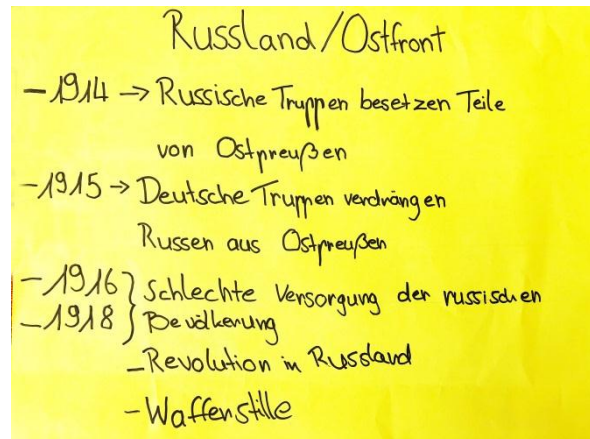 Russland/Ostfront
- 1914 -> Russische Truppen besetzen Teile
von Ostpreußen
- 1915 -> Deutsche Truppen verdrängen
Russen aus Ostpreußen
- 1916 } Schlechte Versorgung der russischen
- 1918 } Bevölkerung
- Revolution in Russland
- Waffenstille